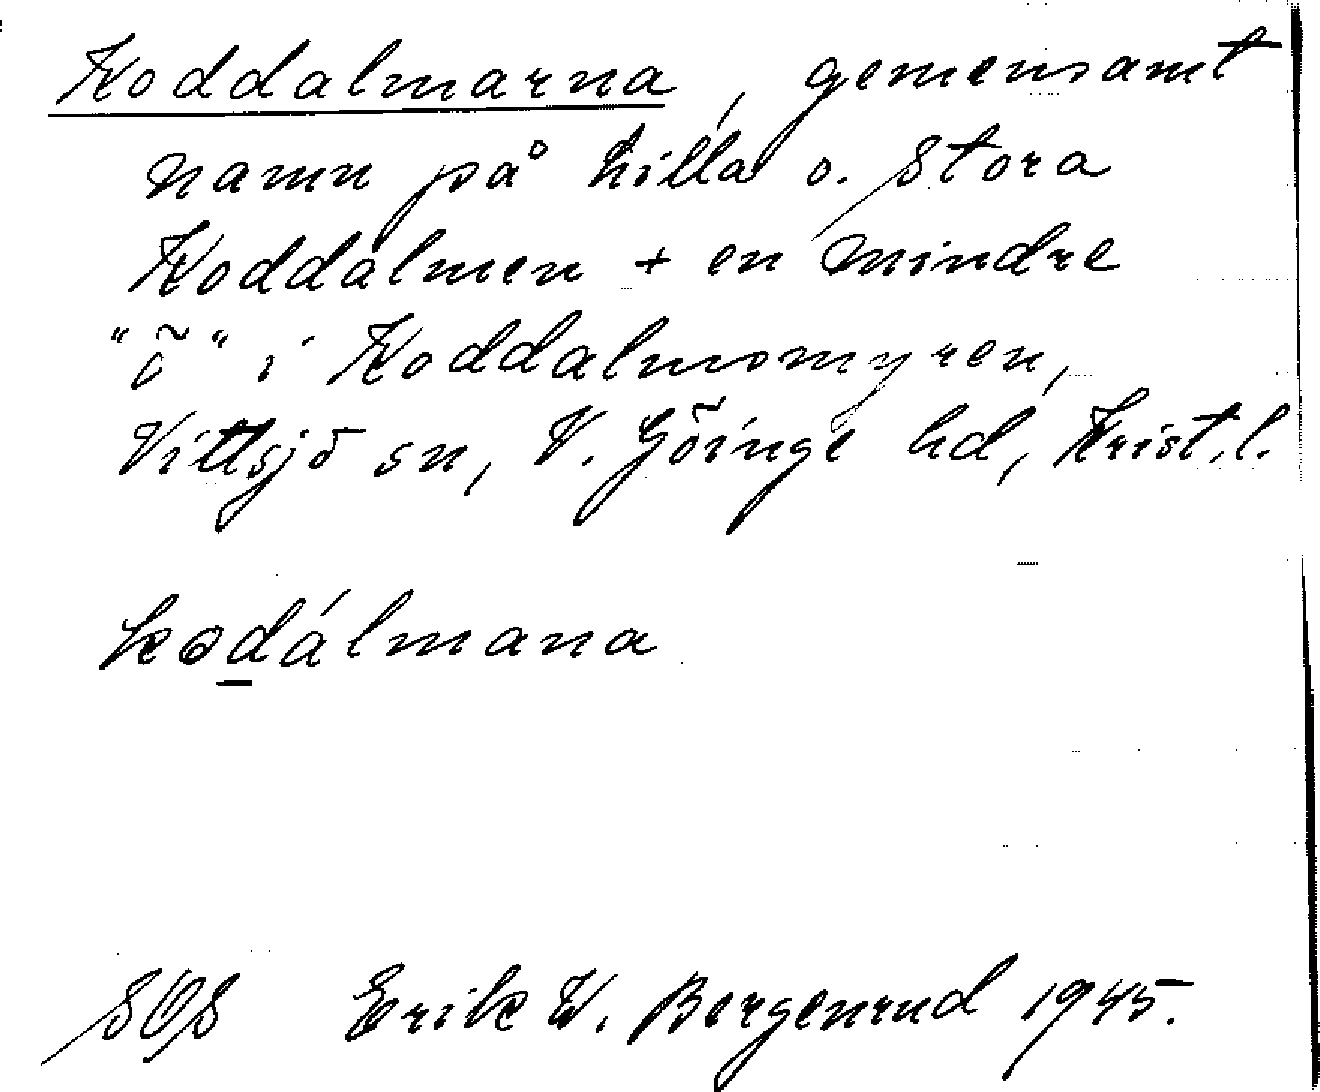 Koddalmarna, gemensamt
namn på Lilla o. Stora
Koddalmen + en mindre
"ö" i Koddalmomyren,
Vittsjö sn, V. Göinge hd, Krist.l.
kodálmana
SOS Erik W. Bergenrud 1945.